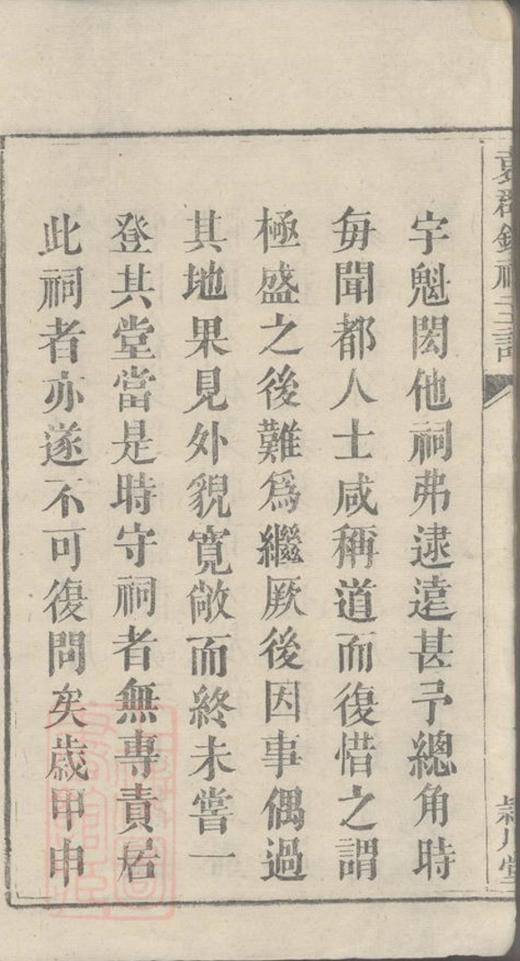 宇魁閎他祠弗逮遠甚予總角時
每聞都人士咸稱道而復惜之謂
極盛之後難爲繼厥後因事偶過
其地果見外貌寬敞而終未嘗一
登其堂當是時守祠者無專責居
此祠者亦遂不可復問矣歲甲申